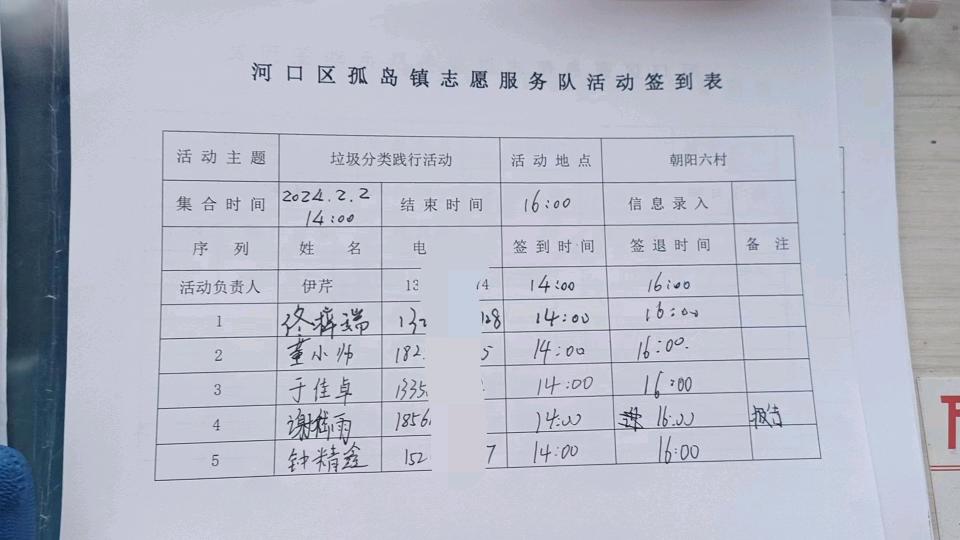 河口区孤岛镇志愿服务队活动签到表
活动主题 垃圾分类践行活动 活动地点 朝阳六村
集合时间 2024.2.2 14:00 结束时间 16:00 信息录入
序列 姓名 电 签到时间 签退时间 备注
活动负责人 伊芹 13 74 14:00 16:00
1 佟梓瑞 132 128 14:00 16:00
2 董小帅 182 5 14:00 16:00.
3 于佳卓 1335 14:00 16:00
4 谢桂雨 1856 14:00 16:00 报告
5 钟精鑫 152 7 14:00 16:00